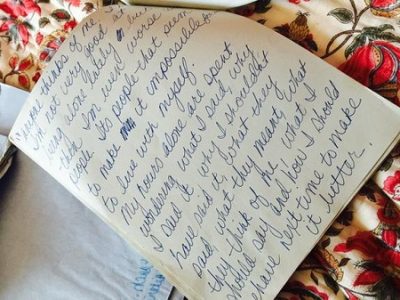 me thinks of me
I'm not very good at
ing alone lately
I'm very worse
people. Its people that seem
to make it impossible
to live with myself
my hours alone are spent
wondering what I said, why
I said it, why I shouldn't
have said it, what they
said, what they meant, what
they think of me, what I
should say and how I should
have next time to make
it better.